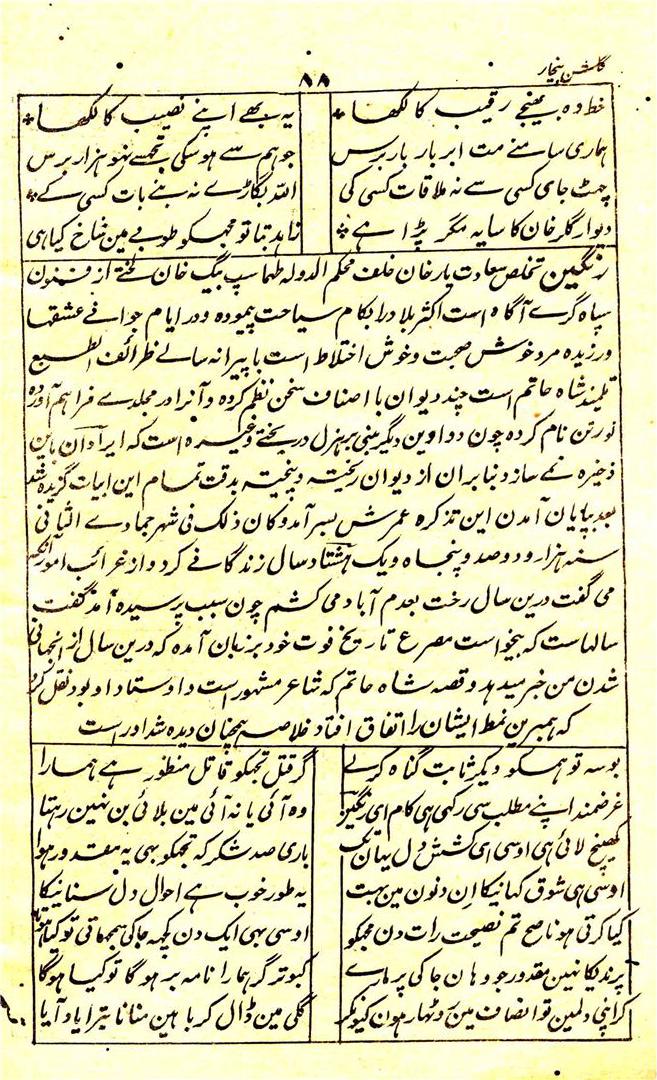 گلشن بیخار
۸۸
خط وہ بھیجے رقیب کا لکھا * یہ بھے اپنے نصیب کا لکھا *
ہماری سامنے مت ابر بار بار برس جو ہم سے ہو سکی تجھسے نہو ہزار برس
چھٹ جای کسی سے نہ ملاقات کسی کی اللہ بگاڑے نہ بنے بات کسی کے *
دیوار گلرخان کا سایہ مگر پڑا ہے * زاہد بتا تو مجھکو طوبے مین شاخ کیا ہی
رنگین تخلص سعادت یار خان خلف محکم الدولہ طہماسپ بیگ خان لختے از فنون
سپاہ گرے آگاہ است اکثر بلاد را بکام سیاحت پیمودہ و در ایام جوانے عشقہا
ورزیدہ مرد خوش صحبت و خوش اختلاط است با پیرانہ سالے ظرائف الطبع
تلمیذ شاہ حاتم است چند دیوان با اصناف سخن نظم کردہ و آنرا در مجلدے فراہم آوردہ
نورتن نام کردہ چون دواوین دیگر مبنی بر ہزل و ریختے وغیرہ است کہ ایراد آن باین
ذخیرہ نمے سازد بنا بران از دیوان ریختہ و بیختہ بدقت تمام این ابیات گزیدہ شد
بعد بپایان آمدن این تذکرہ عمرش بسر آمد و کان ذلک فی شہر جمادے الثانی
سنہ ہزار و دو صد و پنجاہ و یک ہشتاد سال زندگانے کرد و از غرائب امور آنکہ
می گفت درین سال رخت بعدم آباد می کشم چون سبب پرسیدہ آمد گفت
سالہاست کہ بیخواست مصرع تاریخ فوت خود بر زبان آمدہ کہ درین سال از انجہانی
شدن من خبر میدہد و قصہ شاہ حاتم کہ شاعر مشہور است و اوستاد او بود نقل کرد
کہ ہمبرین نمط ایشان را اتفاق افتاد خلاصہ ہمچنان دیدہ شد اوراست
بوسہ تو ہمکو دیکر ثابت گناہ کرلے گر قتل تجھکو قاتل منظور ہے ہمارا
غرضمند اپنے مطلب سی رکہی ہی کام ای رنگین وہ آئی یا نہ آئی مین بلائی بن نہین رہتا
کھینچ لائی ہی اوسی ای کشش دل یہان تک باری صد شکر کہ تجھکو بھی یہ مقدور ہوا
اوسی ہی شوق کہانیکا ان دنون مین بہت یہ طور خوب ہے احوال دل سنانیکا
کیا کرتی ہو ناصح تم نصیحت رات دن مجھکو اوسی بہی ایک دن کچہ جا کی سمجھاتی تو کیا ہوتا
پرندیکا نہین مقدور جو وہان جا کی پر مارے کبوتر گر ہمارا نامہ بر ہوگا تو کیا ہوگا
کر اپنی دلمین تو انصاف مین روٹھار ہون کیونکر گلی مین ڈال کر باہین منانا تیرا یاد آیا